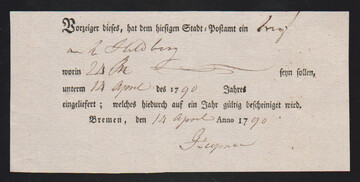 Vorzeiger dieses, hat dem hiesigen Stadt-Postamt ein Brief
an
worin 24 seyn sollen,
unterm 14 April des 1790 Jahres
eingeliefert; welches hiedurch auf ein Jahr gültig bescheiniget wird.
Bremen, den 14 April Anno 1790.